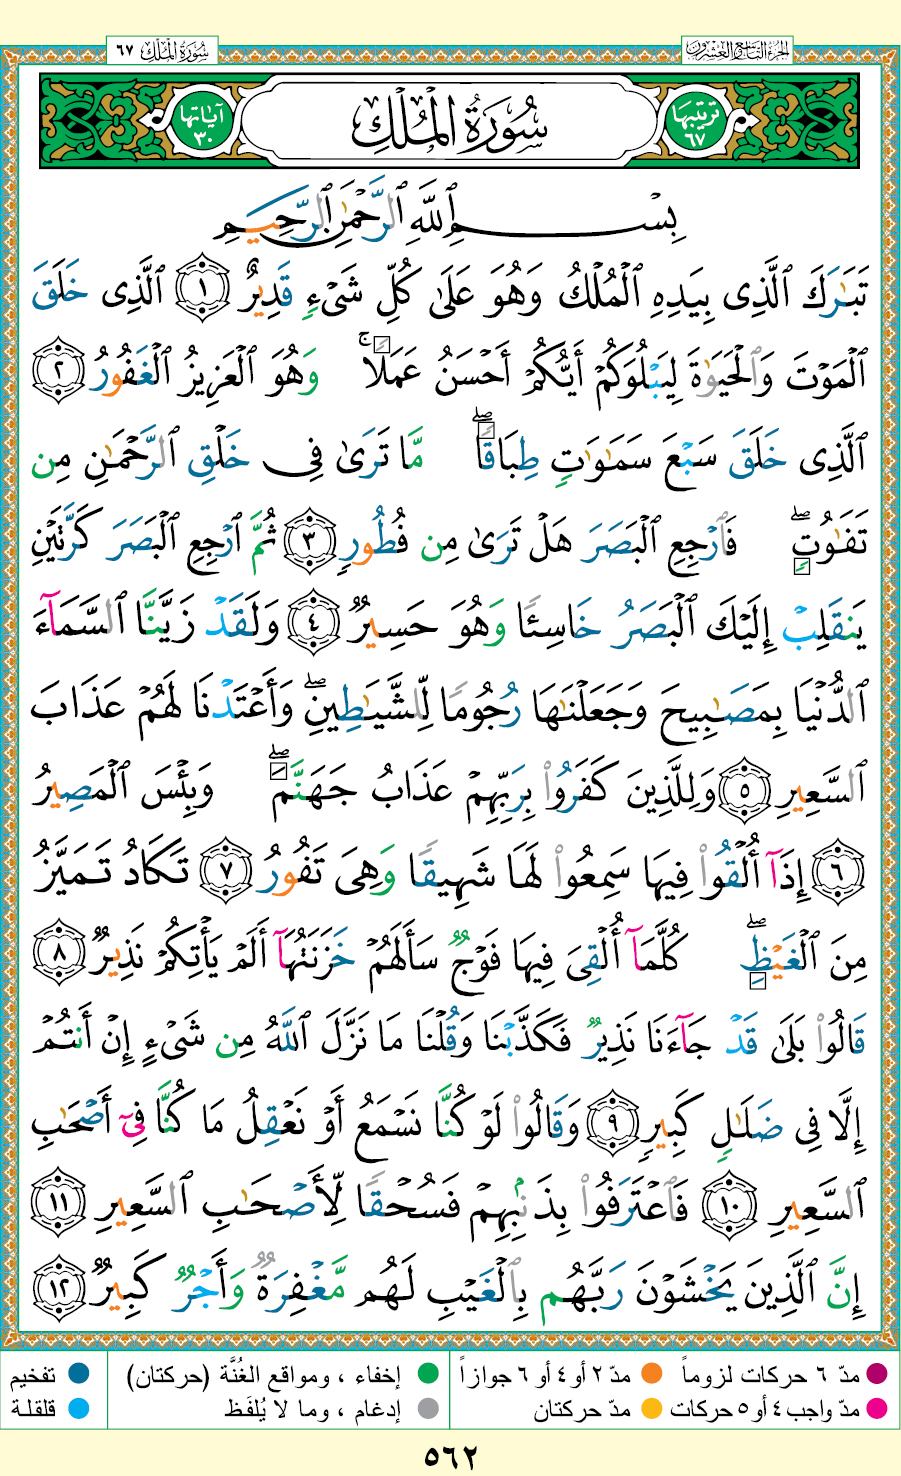 الجزء التاسع والعشرون
سُورَةُ المُلك ٦٧
ترتيبها ٦٧
سُورَةُ الْمُلْكِ
آياتها ٣٠
بِسْمِ ٱللَّهِ ٱلرَّحْمَٰنِ ٱلرَّحِيمِ
تَبَٰرَكَ ٱلَّذِى بِيَدِهِ ٱلْمُلْكُ وَهُوَ عَلَىٰ كُلِّ شَىْءٍ قَدِيرٌ ١ ٱلَّذِى خَلَقَ
ٱلْمَوْتَ وَٱلْحَيَوٰةَ لِيَبْلُوَكُمْ أَيُّكُمْ أَحْسَنُ عَمَلًا ۚ وَهُوَ ٱلْعَزِيزُ ٱلْغَفُورُ ٢
ٱلَّذِى خَلَقَ سَبْعَ سَمَٰوَٰتٍ طِبَاقًا ۖ مَّا تَرَىٰ فِى خَلْقِ ٱلرَّحْمَٰنِ مِن
تَفَٰوُتٍ ۖ فَٱرْجِعِ ٱلْبَصَرَ هَلْ تَرَىٰ مِن فُطُورٍ ٣ ثُمَّ ٱرْجِعِ ٱلْبَصَرَ كَرَّتَيْنِ
يَنقَلِبْ إِلَيْكَ ٱلْبَصَرُ خَاسِئًا وَهُوَ حَسِيرٌ ٤ وَلَقَدْ زَيَّنَّا ٱلسَّمَآءَ
ٱلدُّنْيَا بِمَصَٰبِيحَ وَجَعَلْنَٰهَا رُجُومًا لِّلشَّيَٰطِينِ ۖ وَأَعْتَدْنَا لَهُمْ عَذَابَ
ٱلسَّعِيرِ ٥ وَلِلَّذِينَ كَفَرُوا۟ بِرَبِّهِمْ عَذَابُ جَهَنَّمَ ۖ وَبِئْسَ ٱلْمَصِيرُ
٦ إِذَآ أُلْقُوا۟ فِيهَا سَمِعُوا۟ لَهَا شَهِيقًا وَهِىَ تَفُورُ ٧ تَكَادُ تَمَيَّزُ
مِنَ ٱلْغَيْظِ ۖ كُلَّمَآ أُلْقِىَ فِيهَا فَوْجٌ سَأَلَهُمْ خَزَنَتُهَآ أَلَمْ يَأْتِكُمْ نَذِيرٌ ٨
قَالُوا۟ بَلَىٰ قَدْ جَآءَنَا نَذِيرٌ فَكَذَّبْنَا وَقُلْنَا مَا نَزَّلَ ٱللَّهُ مِن شَىْءٍ إِنْ أَنتُمْ
إِلَّا فِى ضَلَٰلٍ كَبِيرٍ ٩ وَقَالُوا۟ لَوْ كُنَّا نَسْمَعُ أَوْ نَعْقِلُ مَا كُنَّا فِىٓ أَصْحَٰبِ
ٱلسَّعِيرِ ١٠ فَٱعْتَرَفُوا۟ بِذَنۢبِهِمْ فَسُحْقًا لِّأَصْحَٰبِ ٱلسَّعِيرِ ١١
إِنَّ ٱلَّذِينَ يَخْشَوْنَ رَبَّهُم بِٱلْغَيْبِ لَهُم مَّغْفِرَةٌ وَأَجْرٌ كَبِيرٌ ١٢
مدّ ٦ حركات لزوماً مدّ ٢ أو ٤ أو ٦ جوازاً إخفاء ، ومواقع الغُنَّة (حركتان) تفخيم
مدّ واجب ٤ أو ٥ حركات مدّ حركتان إدغام ، وما لا يُلفَظ قلقلة
٥٦٢